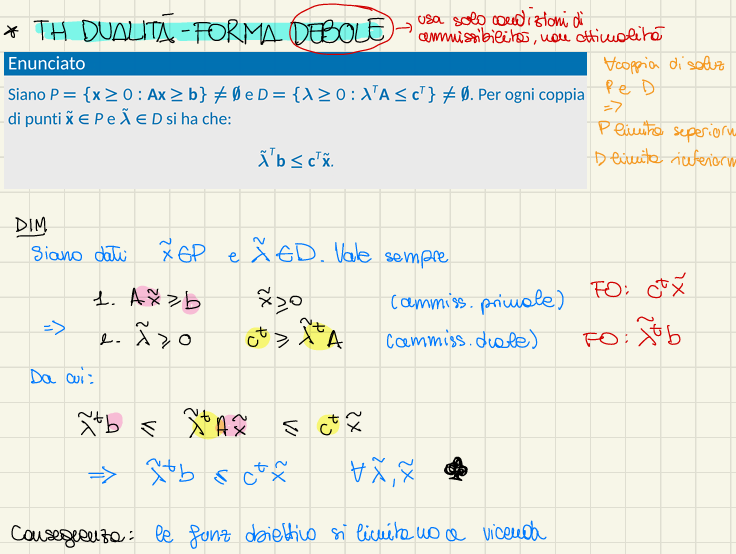 * TH DUALITÀ - FORMA DEBOLE → usa solo condizioni di
ammissibilità, non ottimalità
Enunciato
Siano P = {x ≥ 0 : Ax ≥ b} ≠ ∅ e D = {λ ≥ 0 : λᵀA ≤ cᵀ} ≠ ∅. Per ogni coppia
di punti x̃ ∈ P e λ̃ ∈ D si ha che:
λ̃ᵀb ≤ cᵀx̃.
∀coppia di soluz
P e D
=>
P limita superiorm
D limita inferiorm
DIM
Siano dati x̃ ∈ P e λ̃ ∈ D. Vale sempre
1. Ax̃ ≥ b x̃ ≥ 0 (ammiss. primale) FO: cᵗx̃
=> 2. λ̃ ≥ 0 cᵗ ≥ λ̃ᵗA (ammiss. duale) FO: λ̃ᵗb
Da cui:
λ̃ᵗb ≤ λ̃ᵗAx̃ ≤ cᵗx̃
=> λ̃ᵗb ≤ cᵗx̃ ∀ λ̃, x̃ ♣
Conseguenza: le funz obiettivo si limitano a vicenda